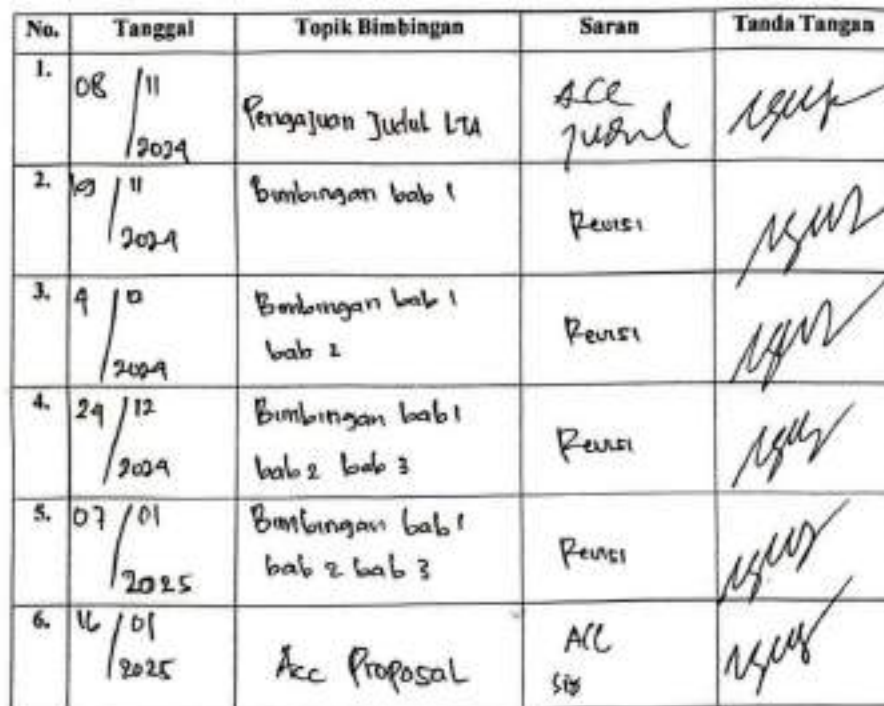 No. Tanggal Topik Bimbingan Saran Tanda Tangan
1. 08/11/2024 Pengajuan Judul LTA ACC Judul
2. 19/11/2024 Bimbingan bab 1 Revisi
3. 2024 Bimbingan bab 1 Revisi
bab 2
4. 24/12/2024 Bimbingan bab 1 Revisi
bab 2 bab 3
5. 07/01/2025 Bimbingan bab 1 Revisi
bab 2 bab 3
6. 16/01/2025 Acc Proposal ACC